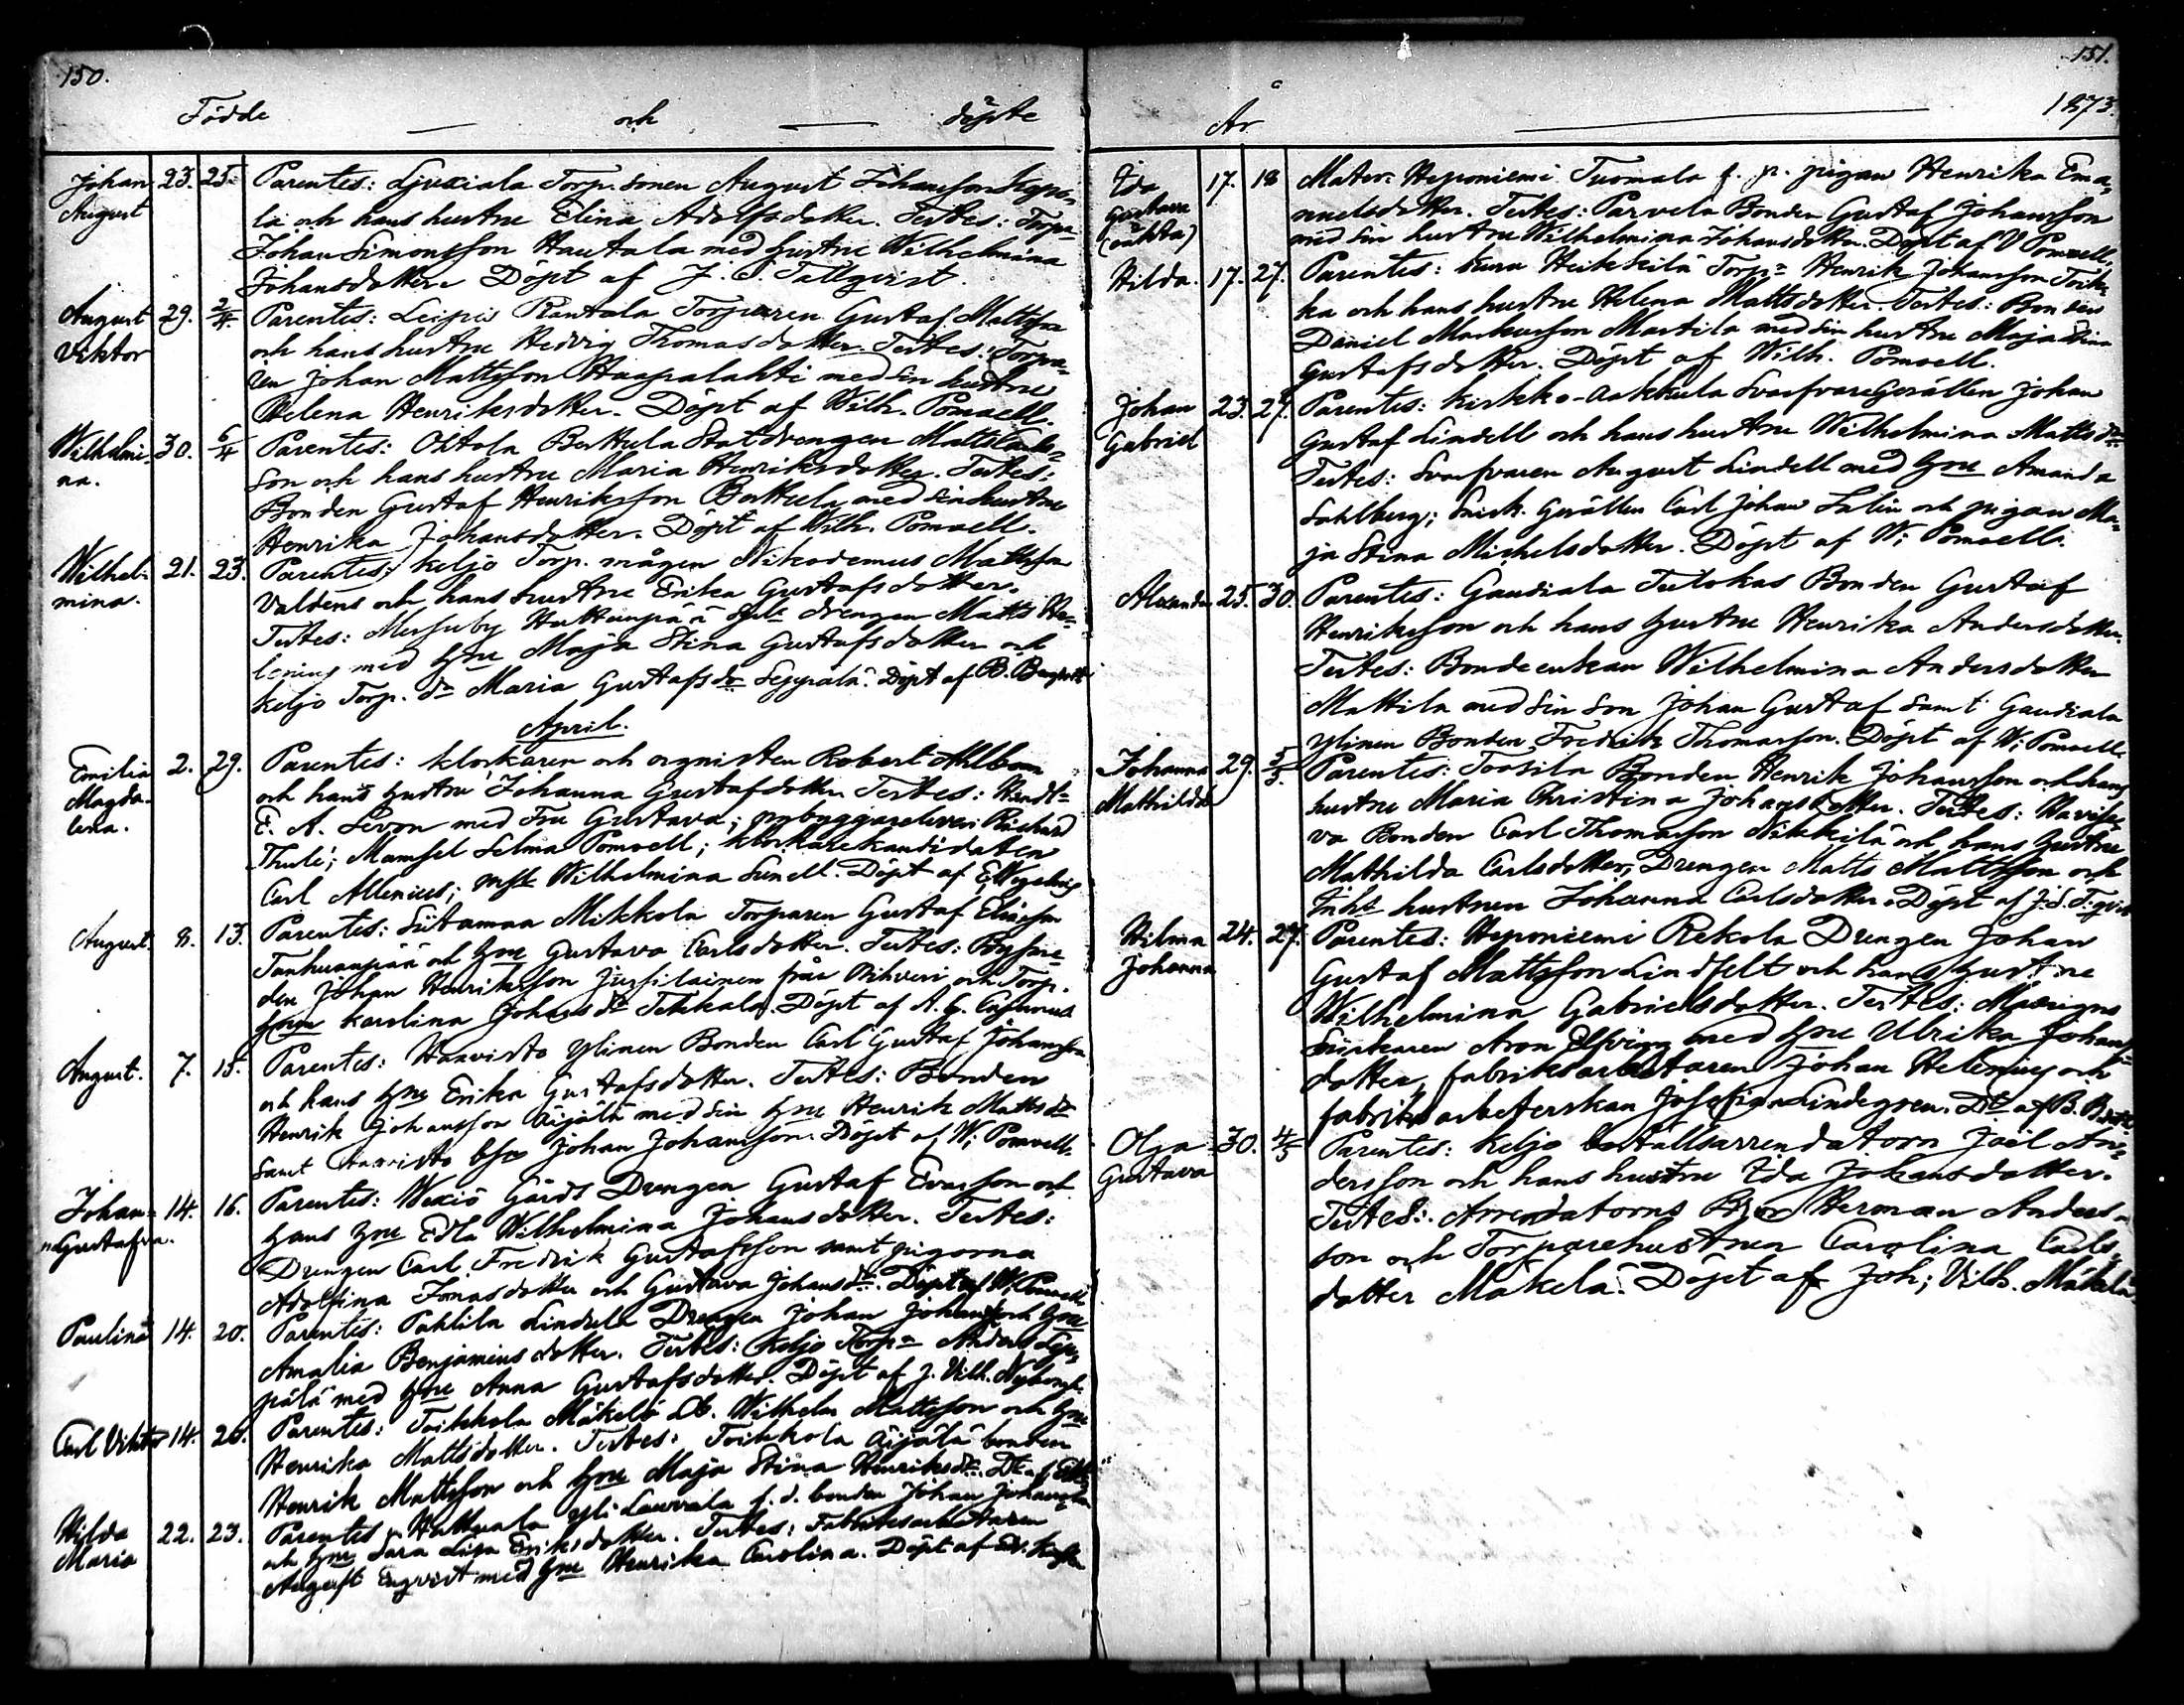 150.
Födde — och — döpte
Johan 23. 25. Parentes: Ljuxiala Torp. sonen August Johansson Seppä-
August lä och hans hustru Elina Adolfsdotter. Testes: Torp.
Johan Simonsson Hautala med hustru Wilhelmina
Johansdotter. Döpt af J. S. Tallqvist.
August 29. 2/4. Parentes: Leipis Rantala Torparen Gustaf Mattsson
Viktor och hans hustru Hedvig Thomasdotter. Testes: Torpa-
ren Johan Mattsson Haapalahti med sin hustru
Helena Henriksdotter. Döpt af Wilh. Pomoell.
Wilhelmi- 30. 6/4 Parentes: Ohtola Berttula Statdrengen Matts
na. son och hans hustru Maria Henriksdotter. Testes:
Bonden Gustaf Henriksson Berttula med sin hustru
Henrika Johansdotter. Döpt af Wilh. Pomoell.
Wilhel- 21. 23. Parentes: Keljo Torp. mågen Nikodemus Mattsson
mina. Valdens och hans hustru Erika Gustafsdotter.
Testes: Mersuby Huttunpää drengen Matts He-
lenius med Hru Maja Stina Gustafsdotter och
Keljo Torp. dr Maria Gustafsdr Seppälä. Döpt af B.
April.
Emilia 2. 29. Parentes: Klockaren och orgnisten Robert Ahlbom
Magda- och hans hustru Johanna Gustafsdotter. Testes: Handl.
lena. E. A. Levon med Fru Gustava; nybyggareeleven Richard
Thulé; Mamsel Selma Pomoell; klockarekandidaten
Carl Allenius; msll Wilhelmina Sunell. Döpt af
August. 8. 13. Parentes: Siitamaa Mikkola Torparen Gustaf Eliasson
Tanhuanpää och Hru Gustava Carlsdotter. Testes:
den Johan Henriksson från och Torp.
hrun Karolina Johansdr Tekkala. Döpt af A. G.
August. 7. 15. Parentes: Haavisto Ylinen Bonden Carl Gustaf Johansson
och hans Hru Erika Gustafsdotter. Testes: Bonden
Henrik Johansson Äijälä med sin Hru Henrik Mattsdr
samt Haavisto Johan Johansson. Döpt af W; Pomoell.
Johan- 14. 16. Parentes: Wexiö Gårds Drengen Gustaf Evasson och
na Gustafva. hans Hru Edla Wilhelmina Johansdotter. Testes:
Drengen Carl Fredrik Gustafsson samt pigorna
Adolfina Jonasdotter och Gustava Johansdr. Döpt af W; Pomoell
Paulina 14. 20. Parentes: Pahlila Lindell Drengen Johan Johansson och Hru
Amalia Benjaminsdotter. Testes: Keljo Torp. Anders Sep-
pälä med Hru Anna Gustafsdotter. Döpt af J. Vilh. Nyberg.
Carl Viktor 14. 20. Parentes: Toikkola Mäkelä Wilhelm Mattsson och Hru
Henrika Mattsdotter. Testes: Toikkola Äijälä bonden
Henrik Mattsson och Hru Maja Stina Henriksdr. Dt af
Hilda 22. 23. Parentes: Huttuala Yli Laurala f. d. bonden Johan Johansson
Maria och Hru Sara Lisa Eriksdotter. Testes: Fabriksarbetaren
August Engvist med Hru Henrika Carolina. Döpt af
151.
År — 1873.
Ida 17. 18 Mater: Heponiemi Tuomala f. p. pigan Henrika Ema-
Gustava nuelsdotter. Testes: Parvela Bonden Gustaf Johansson
(oäkta) med sin hustru Wilhelmina Johansdotter. Döpt af V Pomoell.
Hilda. 17. 27. Parentes: Heikkilä Torp. Henrik Johansson
ka och hans hustru Helena Mattsdotter. Testes: Bonden
Daniel Markusson Marttila med sin hustru Maja Stina
Gustafsdotter. Döpt af Wilh. Pomoell.
Johan 23. 27. Parentes: Kirkko-Aakkula Svarfvaregesällen Johan
Gabriel Gustaf Lindell och hans hustru Wilhelmina Mattsdr.
Testes: Svarfvaren August Lindell med Hru Amanda
Sahlberg; Snick. Gesällen Carl Johan Salin och pigan Ma-
ja Stina Michelsdotter. Döpt af W; Pomoell.
Alexander 25. 30. Parentes: Gaudiala Tulokas Bonden Gustaf
Henriksson och hans hustru Henrika Andersdotter.
Testes: Bondeenkan Wilhelmina Andersdotter
Mattila med sin son Johan Gustaf samt Gaudiala
Ylinen Bonden Fredrik Thomasson. Döpt af W; Pomoell.
Johanna 29. 5/5. Parentes: Toosila Bonden Henrik Johansson och hans
Mathilda hustru Maria Christina Johansdotter. Testes:
va Bonden Carl Thomasson Nikkilä och hans hustru
Mathilda Carlsdotter; Drengen Matts Mattsson och
Inhs hustrun Johanna Carlsdotter. Döpt af J. S. T.qvist
Hilma 24. 27. Parentes: Heponiemi Rekola Drengen Johan
Johanna Gustaf Mattsson Lindfelt och hans hustru
Wilhelmina Gabrielsdotter. Testes:
Aron Elfving med Hru Ulrika Johans-
dotter, fabriksarbetaren Johan Helenius och
fabriksarbeterskan Josefina Lindegren. Dt af B.
Olga 30. 4/5 Parentes: Keljo Bostallsarrendatorn Joël An-
Gustava dersson och hans hustru Ida Johansdotter.
Testes: Arrendatorns Bror Herman Anders-
son och Torparehustrun Carolina Carls-
dotter Mäkelä. Döpt af Joh; Vilh. Mäkelä.